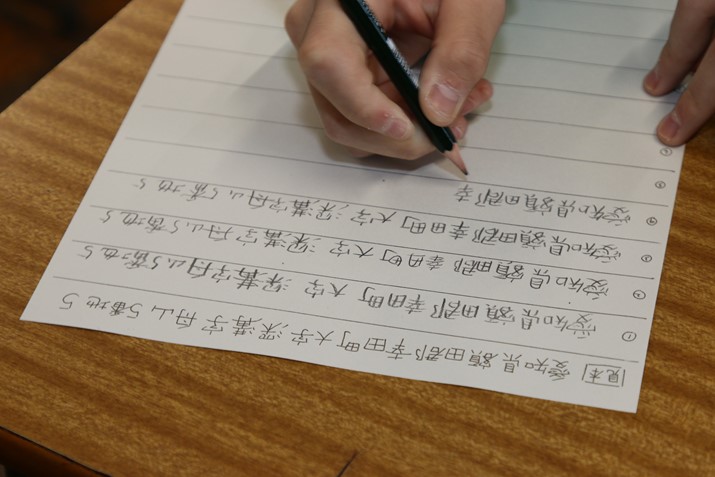 見本 愛知県額田郡幸田町大字深溝字舟山5番地5
① 愛知県額田郡 幸田町 大字 深溝字舟山5番地5
② 愛知県額田郡 幸田町 大字 深溝字舟山5番地5
③ 愛知県額田郡 幸田町 大字 深溝字舟山5番地5
④ 愛知県額田郡幸
⑤
⑥